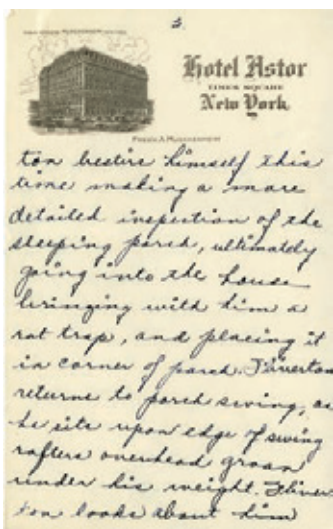 2.
Hotel Astor
TIMES SQUARE
New York
FRED'K A. MUSCHENHEIM
ton bestirs himself this
time making a more
detailed inspection of the
sleeping porch, ultimately
going into the house
bringing with him a
rat trap, and placing it
in corner of porch. Fliverton
returns to porch swing, as
he sits upon edge of swing
rafters overhead groan
under his weight. Fliver-
ton looks about him